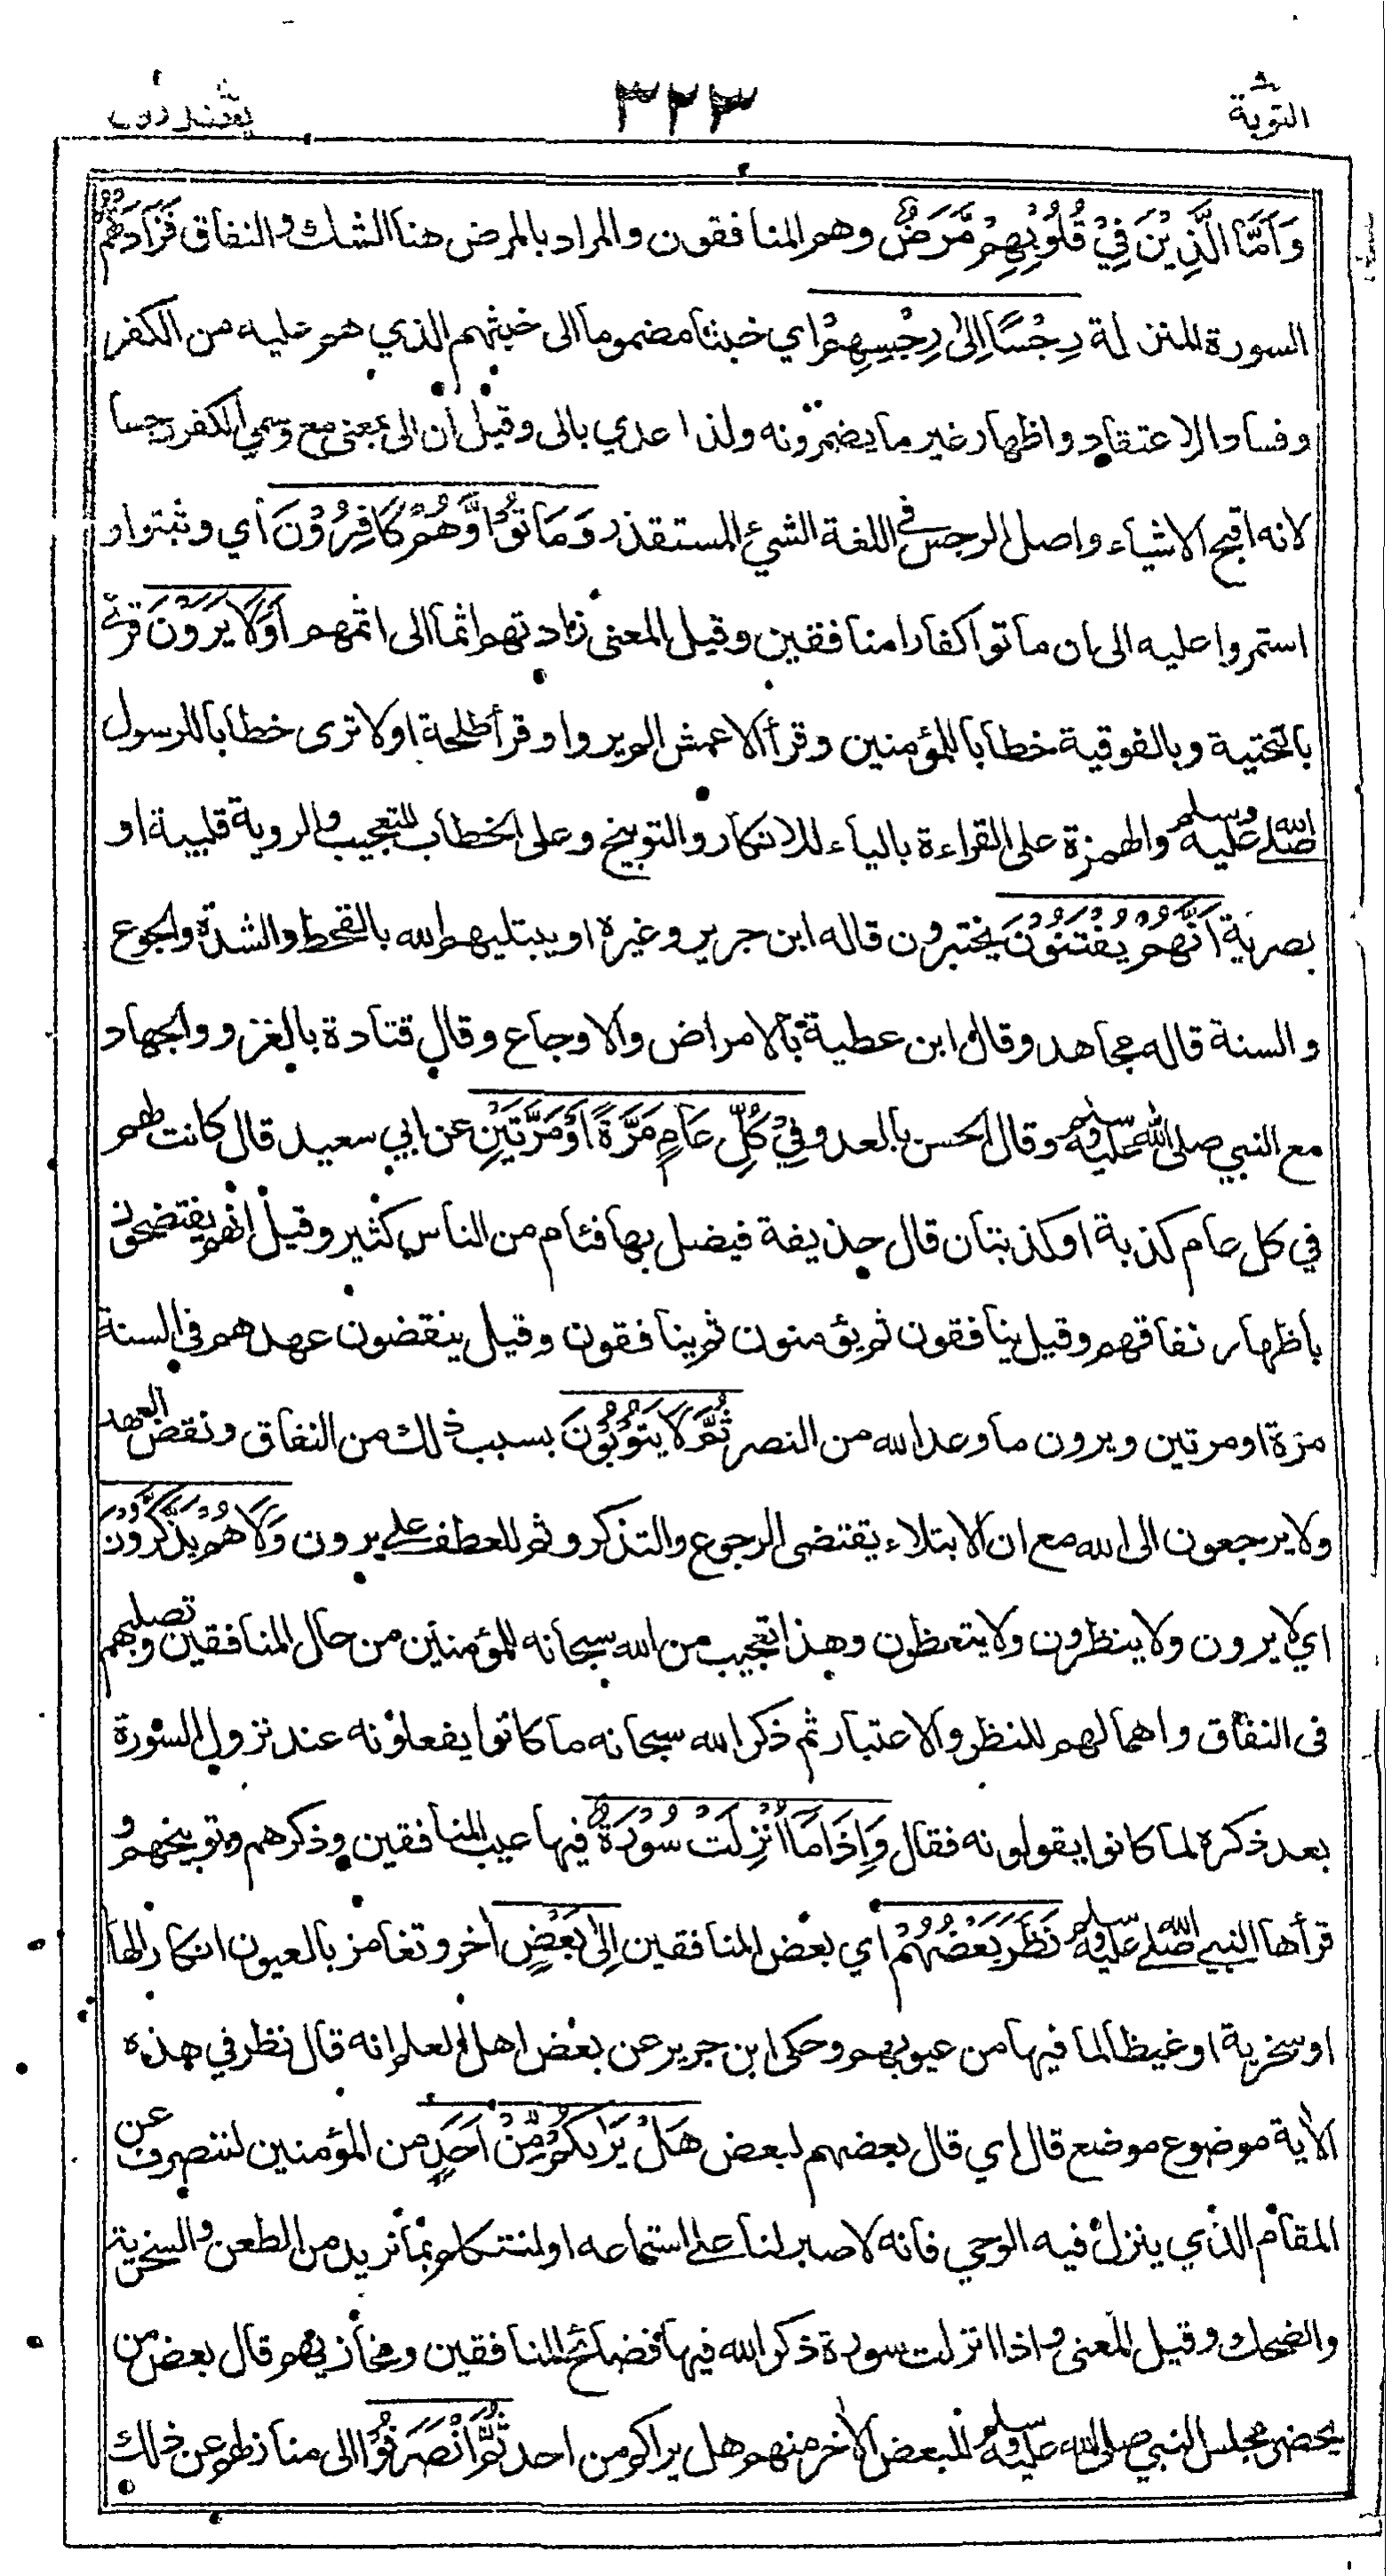 التوبة ٣٢٣ يعتذرون
وَاَمَّا الَّذِيْنَ فِيْ قُلُوْبِهِمْ مَّرَضٌ وهم المنافقون والمراد بالمرض هنا الشك والنفاق فَزَادَتْهُمْ
السورة المنزلة رِجْسًا اِلىٰ رِجْسِهِمْ اي خبثا مضموما الى خبثهم الذي هم عليه من الكفر
وفساد الاعتقاد واظهار غير ما يضمرونه ولذا عدي بالى وقيل ان الى بمعنى مع وسمي الكفر رجسا
لانه اقبح الاشياء واصل الرجس في اللغة الشيء المستقذر وَمَاتُوْا وَّهُمْ كَافِرُوْنَ أي وثبتوا و
استمروا عليه الى ان ماتوا كفارا منافقين وقيل المعنى زادتهم اثما الى اثمهم اَوَلَا يَرَوْنَ قرئ
بالتحتية وبالفوقية خطابا للمؤمنين وقرأ الاعمش الم يروا وقرأ طلحة اولا ترى خطابا للرسول
صلى الله عليه وسلم والهمزة على القراءة بالياء للانكار والتوبيخ وعلى الخطاب للتعجيب والروية قلبية او
بصرية اَنَّهُمْ يُفْتَنُوْنَ يختبرون قاله ابن جرير وغيره او يبتليهم الله بالقحط والشدة والجوع
والسنة قاله مجاهد وقال ابن عطية بالامراض والاوجاع وقال قتادة بالغزو والجهاد
مع النبي صلى الله عليه وسلم وقال الحسن بالعدو فِيْ كُلِّ عَامٍ مَرَّةً اَوْ مَرَّتَيْنِ عن ابي سعيد قال كانت لهم
في كل عام كذبة او كذبتان قال حذيفة فيضل بها فئام من الناس كثير وقيل انهم يفتضحون
باظهار نفاقهم وقيل ينافقون ثم يؤمنون ثم ينافقون وقيل ينقضون عهدهم في السنة
مرة او مرتين ويرون ما وعد الله من النصر ثُمَّ لَا يَتُوْبُوْنَ بسبب ذلك من النفاق ونقض العهد
ولا يرجعون الى الله مع ان الابتلاء يقتضى الرجوع والتذكر وثم للعطف على يرون وَلَا هُمْ يَذَّكَّرُوْنَ
اي لا يرون ولا ينظرون ولا يتعظون وهذا تعجيب من الله سبحانه للمؤمنين من حال المنافقين وتصلبهم
فى النفاق واهمالهم للنظر والاعتبار ثم ذكر الله سبحانه ما كانوا يفعلونه عند نزول السورة
بعد ذكره لما كانوا يقولونه فقال وَاِذَا مَا اُنْزِلَتْ سُوْرَةٌ فيها عيب المنافقين وذكرهم وتوبيخهم و
قرأها النبي صلى الله عليه وسلم نَظَرَ بَعْضُهُمْ اي بعض المنافقين اِلىٰ بَعْضٍ اخر وتغامز بالعيون انكارا لها
او سخرية او غيظا لما فيها من عيوبهم وحكى ابن جرير عن بعض اهل العلم انه قال نظر في هذه
الاية موضوع موضع قال اي قال بعضهم لبعض هَلْ يَرَاكُمْ مِّنْ اَحَدٍ من المؤمنين لننصرف عن
المقام الذي ينزل فيه الوحي فانه لا صبر لنا على استماعه او لنتكلم بما نريد من الطعن والسخرية
والضحك وقيل المعنى واذا انزلت سورة ذكر الله فيها فضائح المنافقين ومخازيهم قال بعض من
يحضر مجلس النبي صلى الله عليه وسلم للبعض الاخر منهم هل يراكم من احد ثُمَّ انْصَرَفُوْا الى منازلهم عن ذلك